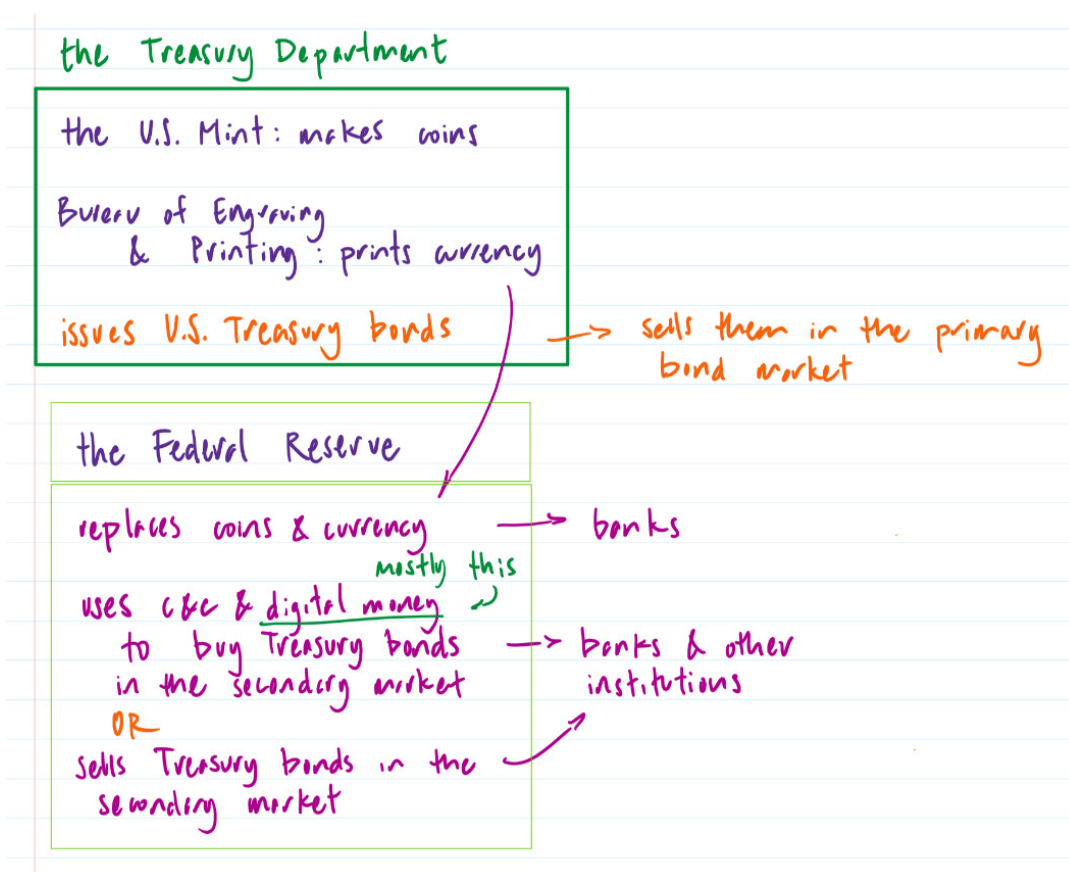 the Treasury Department
the U.S. Mint: makes coins
Bureau of Engraving
& Printing: prints currency
issues U.S. Treasury bonds → sells them in the primary
bond market
the Federal Reserve
replaces coins & currency → banks
mostly this
uses c&c & digital money
to buy Treasury bonds → banks & other
in the secondary market institutions
OR
sells Treasury bonds in the
secondary market